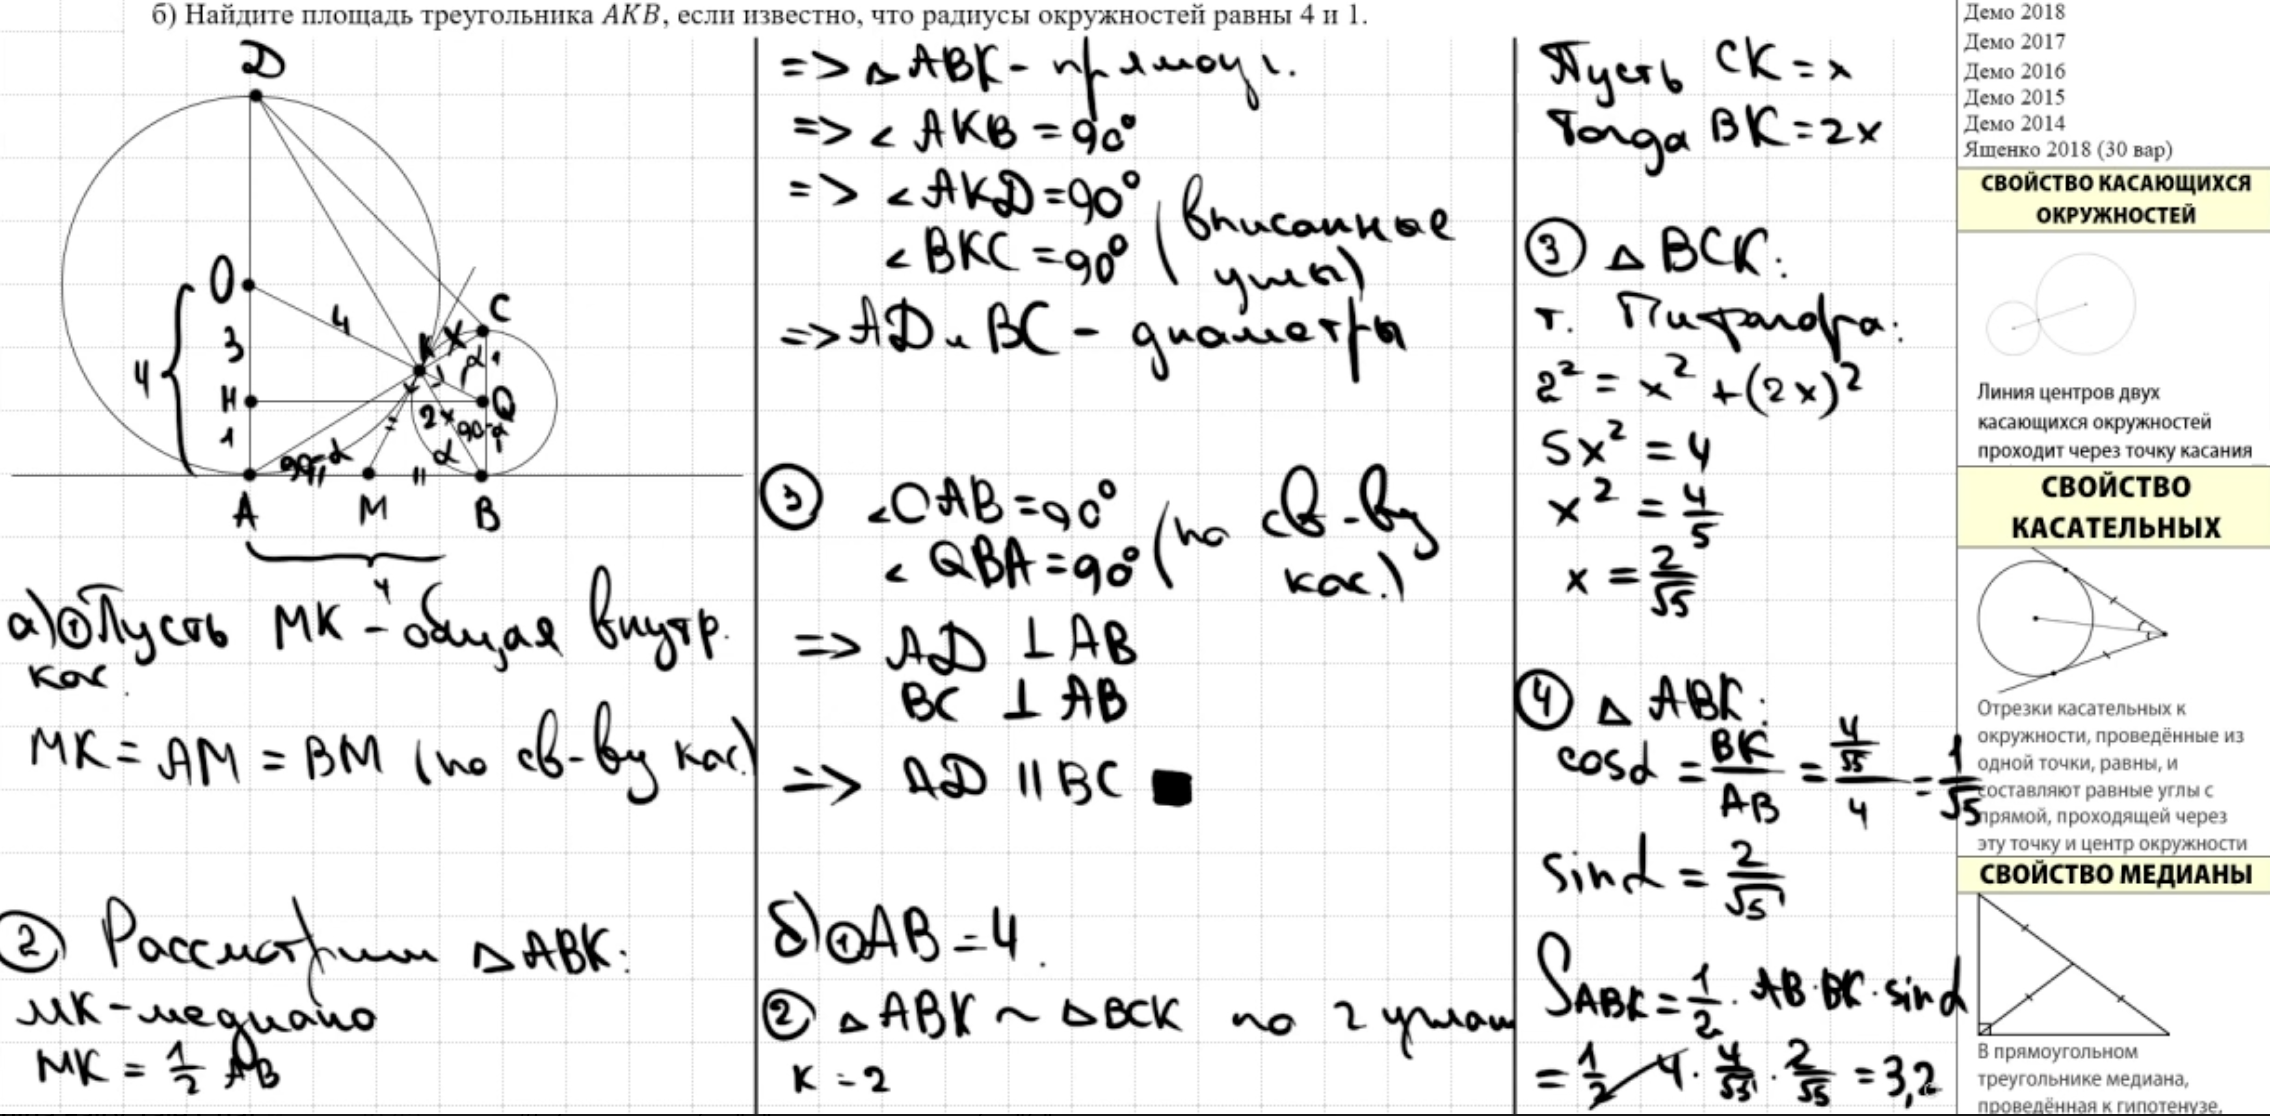 б) Найдите площадь треугольника AKB, если известно, что радиусы окружностей равны 4 и 1.
D
O
4
C
3
K
X
4
α
1
H
Q
2x
1
90-α
α
90-α
A
M
B
4
а) ① Пусть MK - общая внутр.
кас.
MK = AM = BM (по св-ву кас.)
② Рассмотрим △ABK:
MK - медиана
MK = 1/2 AB
=> △ABK - прямоуг.
=> ∠AKB = 90°
=> ∠AKD = 90°
∠BKC = 90° (вписанные
углы)
=> AD и BC - диаметры
③ ∠OAB = 90°
∠QBA = 90° (по св-ву
кас.)
=> AD ⊥ AB
BC ⊥ AB
=> AD || BC ■
б) ① AB = 4.
② △ABK ~ △BCK по 2 углам
K = 2
Пусть CK = x
Тогда BK = 2x
③ △BCK:
т. Пифагора:
2² = x² + (2x)²
5x² = 4
x² = 4/5
x = 2/√5
④ △ABK:
cosα = BK/AB = (4/√5)/4 = 1/√5
sinα = 2/√5
S ABK = 1/2 · AB · BK · sinα
= 1/2 · 4 · 4/√5 · 2/√5 = 3,2
Демо 2018
Демо 2017
Демо 2016
Демо 2015
Демо 2014
Ященко 2018 (30 вар)
СВОЙСТВО КАСАЮЩИХСЯ
ОКРУЖНОСТЕЙ
Линия центров двух
касающихся окружностей
проходит через точку касания
СВОЙСТВО
КАСАТЕЛЬНЫХ
Отрезки касательных к
окружности, проведённые из
одной точки, равны, и
составляют равные углы с
прямой, проходящей через
эту точку и центр окружности
СВОЙСТВО МЕДИАНЫ
В прямоугольном
треугольнике медиана,
проведённая к гипотенузе,